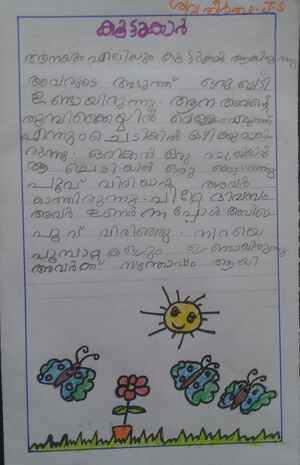 ശിവതീർത്ഥം. J.S
കൂട്ടുകാർ
ആനയും എലിയും കൂട്ടുകാർ ആയിരുന്നു
അവരുടെ അടുത്ത് ഒരു ചെടി
ഉണ്ടായിരുന്നു. ആന അവന്റെ
തുമ്പിക്കൈയിൽ വെള്ളം എടുത്ത്
എന്നും ചെടിക്ക് ഒഴിക്കുമായി
രുന്നു. ഒരിക്കൽ ഒരു
ആ ചെടിയിൽ ഒരു
പൂവ് വിരിയാൻ അവർ
കാത്തിരുന്നു. പിറ്റേ ദിവസം
അവർ ഉണർന്നപ്പോൾ അവിടെ
പൂവ് വിരിഞ്ഞു. നിറയെ
പൂമ്പാറ്റകളും ഉണ്ടായിരുന്നു
അവർക്ക് സന്തോഷം ആയി